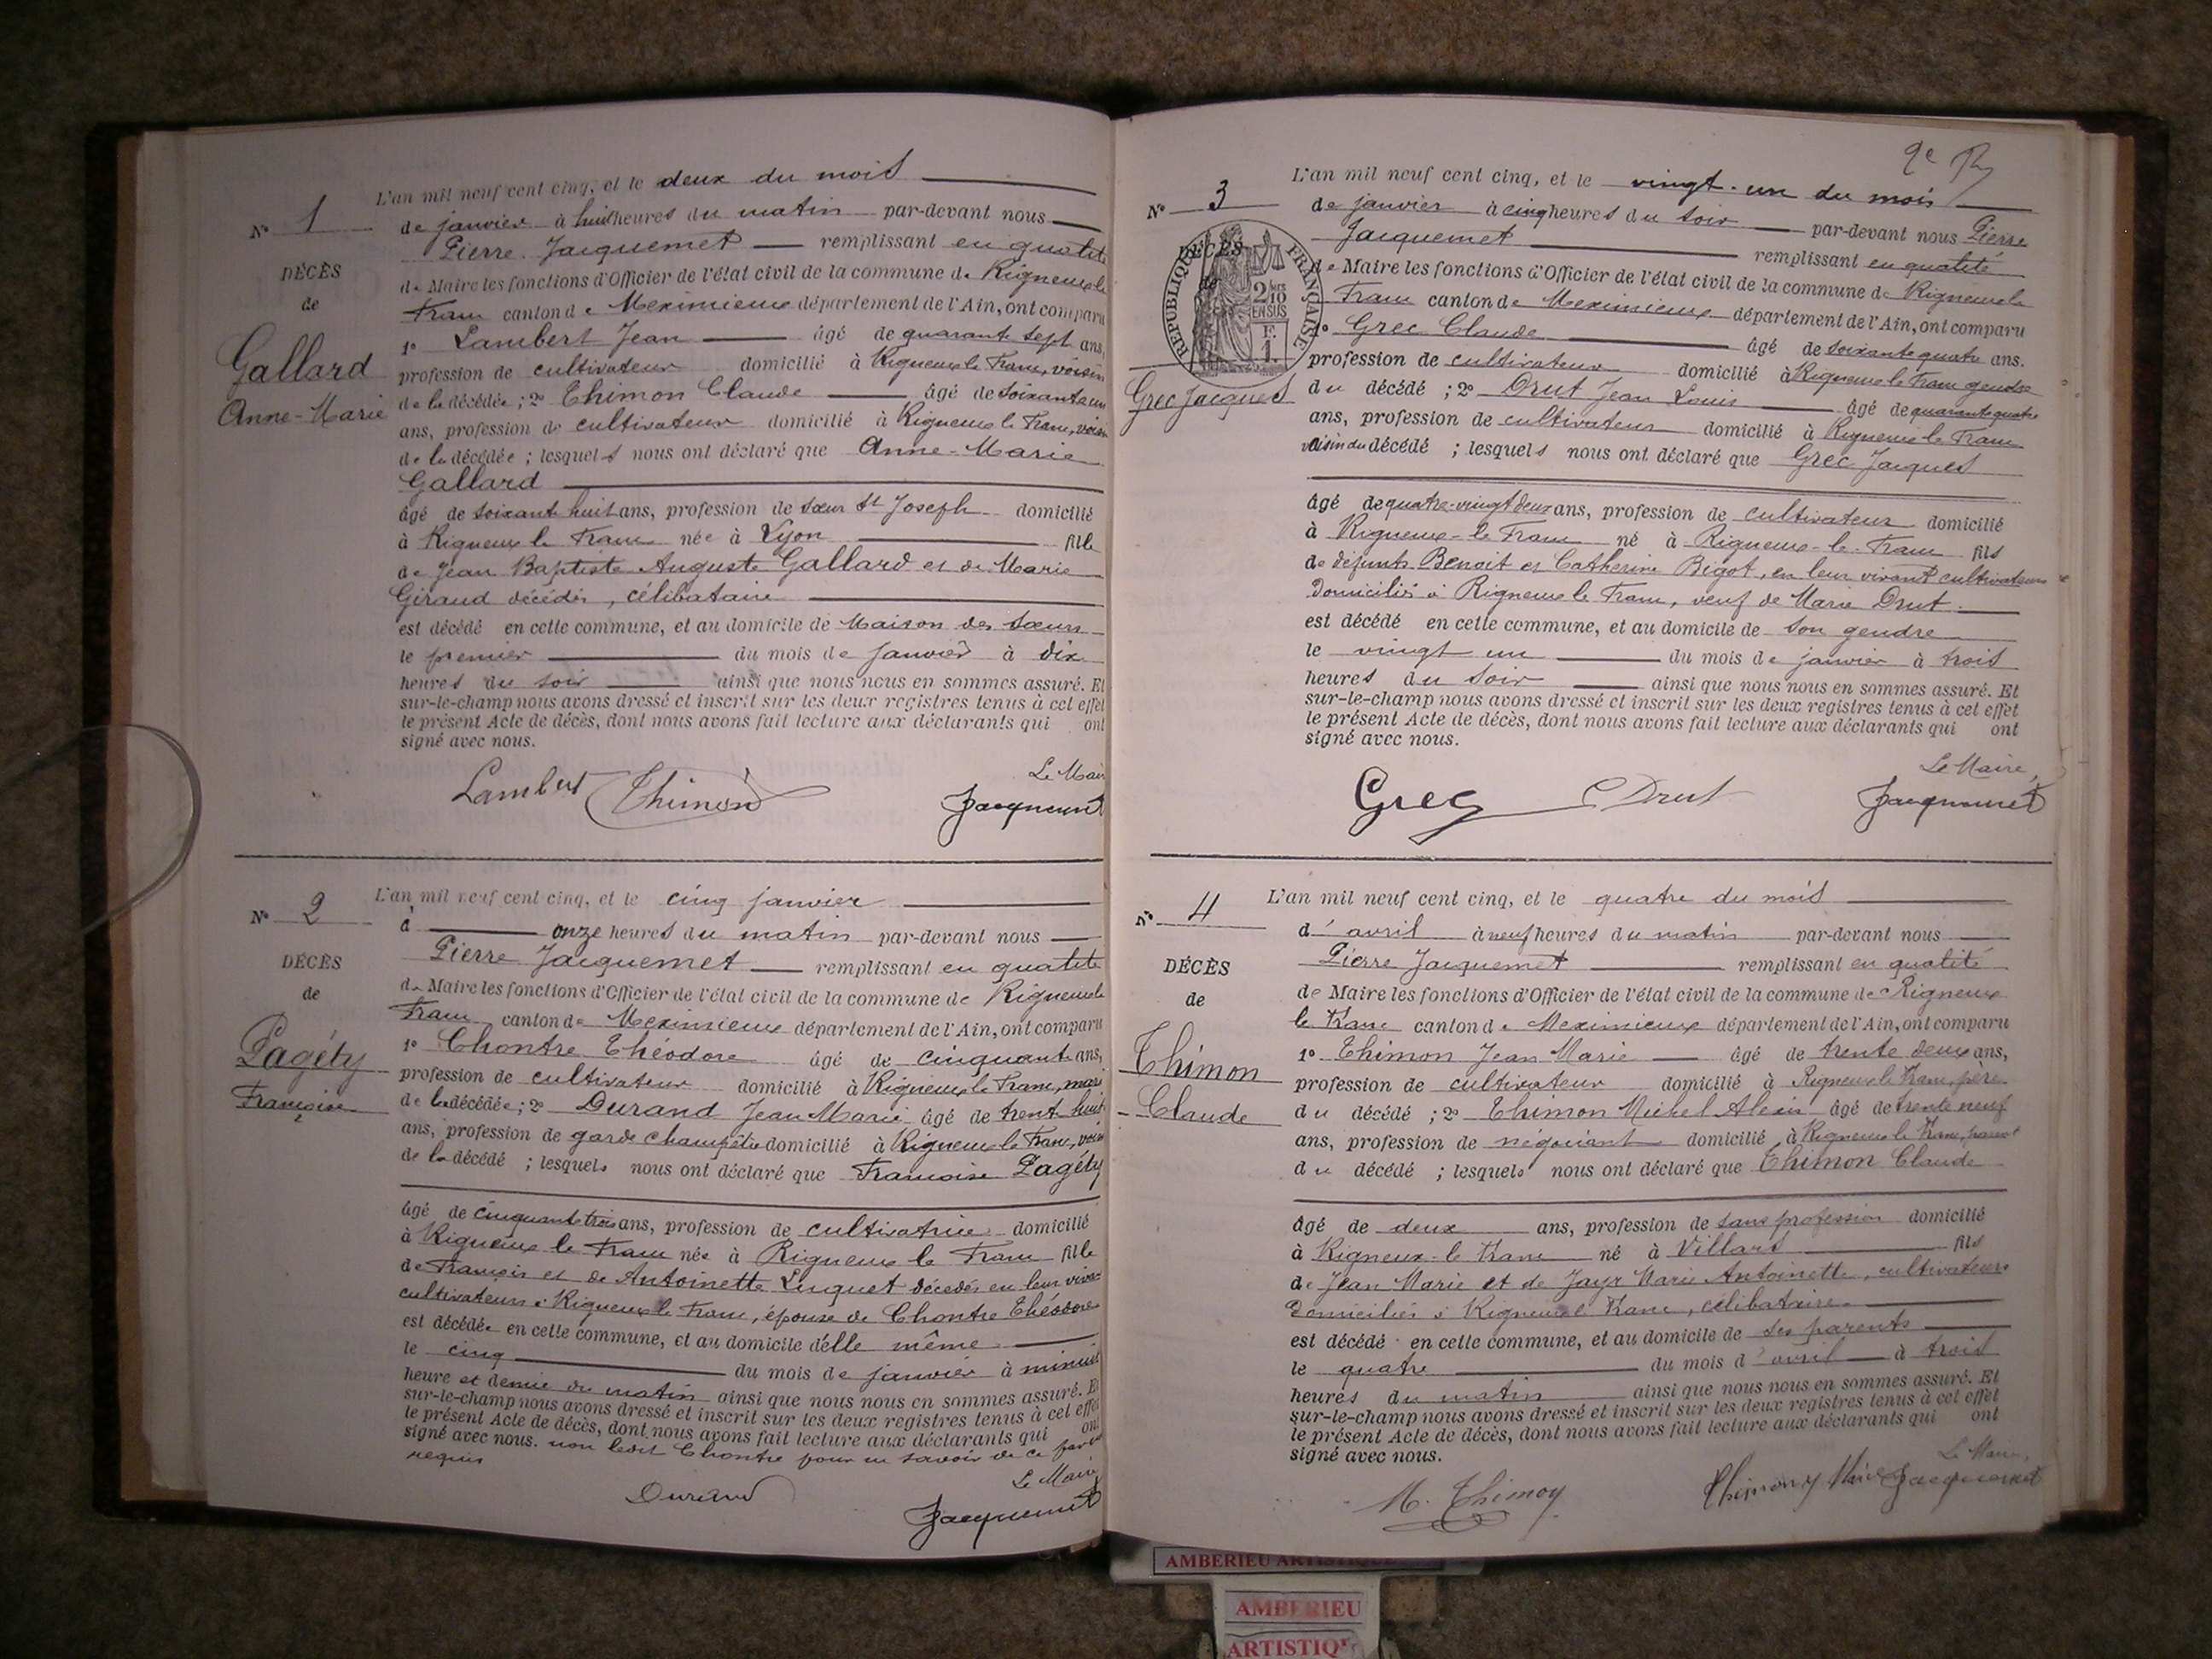 L'an mil neuf cent cinq, et le deux du mois
N° 1
de janvier à huit heures du matin par-devant nous
Pierre Jacquemet remplissant en qualité
DÉCÈS
de Maire les fonctions d'Officier de l'état civil de la commune de Rigneux le
de
Franc canton de Meximieux département de l'Ain, ont comparu
1° Lambert Jean âgé de quarante sept ans,
Gallard
profession de cultivateur domicilié à Rigneux le Franc, voisin
Anne-Marie
de la décédée ; 2° Thimon Claude âgé de soixante un
ans, profession de cultivateur domicilié à Rigneux le Franc, voisin
de la décédée ; lesquels nous ont déclaré que Anne-Marie
Gallard
âgé de soixante huit ans, profession de sœur St Joseph domicilié
à Rigneux le Franc née à Lyon fille
de Jean Baptiste Auguste Gallard et de Marie
Giraud décédés, célibataire
est décédé en cette commune, et au domicile de Maison des sœurs
le premier du mois de janvier à dix
heures du soir ainsi que nous nous en sommes assuré. Et
sur-le-champ nous avons dressé et inscrit sur les deux registres tenus à cet effet
le présent Acte de décès, dont nous avons fait lecture aux déclarants qui ont
signé avec nous.
Le Maire
Lambert Thimon Jacquemet
L'an mil neuf cent cinq, et le cinq janvier
N° 2
à onze heures du matin par-devant nous
Pierre Jacquemet remplissant en qualité
DÉCÈS
de Maire les fonctions d'Officier de l'état civil de la commune de Rigneux le
de
Franc canton de Meximieux département de l'Ain, ont comparu
1° Chontre Théodore âgé de cinquante ans,
Pagéty
profession de cultivateur domicilié à Rigneux le Franc, mari
Françoise
de la décédée ; 2° Durand Jean Marie âgé de trente huit
ans, profession de garde champêtre domicilié à Rigneux le Franc, voisin
de la décédé ; lesquels nous ont déclaré que Françoise Pagéty
âgé de cinquante trois ans, profession de cultivatrice domicilié
à Rigneux le Franc née à Rigneux le Franc fille
de François et de Antoinette Luquet décédés en leur vivant
cultivateurs à Rigneux le Franc, épouse de Chontre Théodore
est décédée en cette commune, et au domicile d'elle même
le cinq du mois de janvier à minuit
heure et demie du matin ainsi que nous nous en sommes assuré. Et
sur-le-champ nous avons dressé et inscrit sur les deux registres tenus à cet effet
le présent Acte de décès, dont nous avons fait lecture aux déclarants qui ont
signé avec nous. non ledit Chontre pour ne savoir de ce
requis
Le Maire
Durand Jacquemet
2e
L'an mil neuf cent cinq, et le vingt-un du mois
N° 3
de janvier à cinq heures du soir par-devant nous Pierre
Jacquemet remplissant en qualité
DÉCÈS
de
RÉPUBLIQUE FRANÇAISE
2/10 EN SUS
de Maire les fonctions d'Officier de l'état civil de la commune de Rigneux le
Franc canton de Meximieux département de l'Ain, ont comparu
1° Grec Claude âgé de soixante quatre ans.
profession de cultivateur domicilié à Rigneux le Franc gendre
Grec Jacques
du décédé ; 2° Drut Jean Louis âgé de quarante quatre
ans, profession de cultivateur domicilié à Rigneux le Franc
voisin du décédé ; lesquels nous ont déclaré que Grec Jacques
âgé de quatre-vingt deux ans, profession de cultivateur domicilié
à Rigneux-le Franc né à Rigneux-le-Franc fils
de défunts Benoit et Catherine Bigot, en leur vivant cultivateurs
domiciliés à Rigneux le Franc, veuf de Marie Drut.
est décédé en cette commune, et au domicile de son gendre
le vingt un du mois de janvier à trois
heures du soir ainsi que nous nous en sommes assuré. Et
sur-le-champ nous avons dressé et inscrit sur les deux registres tenus à cet effet
le présent Acte de décès, dont nous avons fait lecture aux déclarants qui ont
signé avec nous.
Le Maire,
Grec Drut Jacquemet
L'an mil neuf cent cinq, et le quatre du mois
N° 4
d'avril à neuf heures du matin par-devant nous
Pierre Jacquemet remplissant en qualité
DÉCÈS
de Maire les fonctions d'Officier de l'état civil de la commune de Rigneux
de
le Franc canton de Meximieux département de l'Ain, ont comparu
Thimon
1° Thimon Jean Marie âgé de trente deux ans,
profession de cultivateur domicilié à Rigneux le Franc, père
Claude
du décédé ; 2° Thimon Michel Alexis âgé de trente neuf
ans, profession de négociant domicilié à Rigneux le Franc, parent
du décédé ; lesquels nous ont déclaré que Thimon Claude
âgé de deux ans, profession de sans profession domicilié
à Rigneux-le Franc né à Villars fils
de Jean Marie et de Jayr Marie Antoinette, cultivateurs
domiciliés à Rigneux le Franc, célibataire.
est décédé en cette commune, et au domicile de ses parents
le quatre du mois d'avril à trois
heures du matin ainsi que nous nous en sommes assuré. Et
sur-le-champ nous avons dressé et inscrit sur les deux registres tenus à cet effet
le présent Acte de décès, dont nous avons fait lecture aux déclarants qui ont
signé avec nous.
Le Maire,
M. Thimon Thimon Jacquemet
AMBERIEU ARTISTIQUE
AMBERIEU
ARTISTIQ